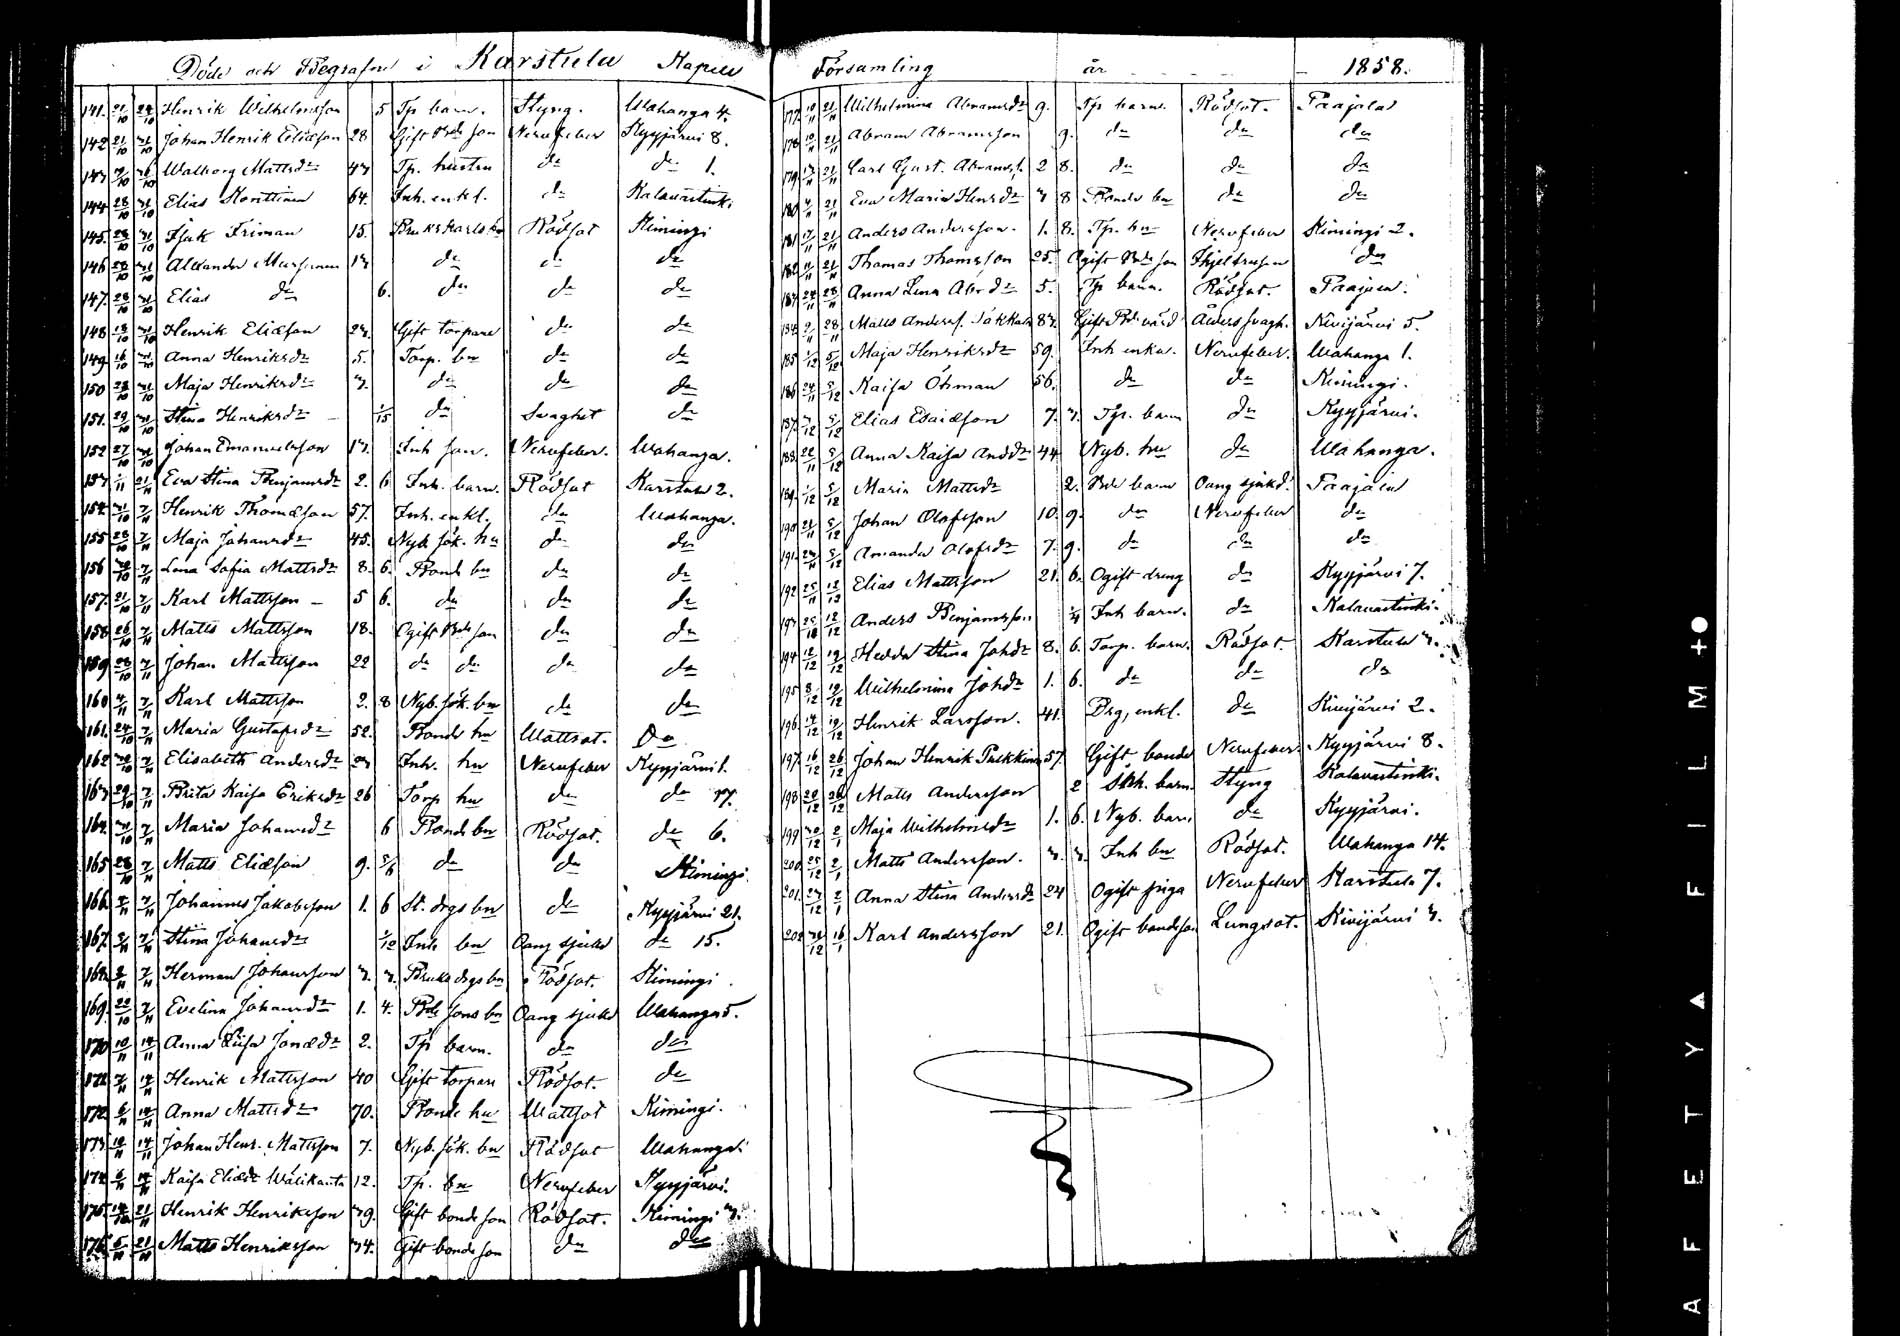 Döde och Begrafne i Karstula Kapell
141. 21/10 24/10 Henrik Wilhelmsson 5 Tp barn. Styng. Wahanga 4.
142 21/10 31/10 Johan Henrik Eliæson 28 Gift Bde son Nervfeber Kyyjärvi 8.
Walborg Mattsdr Tp. hustru do do 1.
144 28/10 31/10 Elias Konttinen 64. Inh. enkl. do Kalavastinki
145. 28/10 31/10 Isak Friman 15. Bruks karls bn Rödsot Kimingi
146 28/10 31/10 Alexander 13 do do do
147. 28/10 31/10 Elias do 6. do do do
148 31/10 Henrik Eliæson 23. Gift torpare do do
149. 16/10 31/10 Anna Henriksdr 5. Torp. bn do do
150 28/10 31/10 Maja Henriksdr 3. do do do
151. 29/10 31/10 Stina Henriksdr – 1/15 do Svaghet do
152 27/10 31/10 Johan Emanuelsson 13. Inh son. Nervfeber. Wahanga.
153 1/11 21/11 Eva Stina Benjamsdr 2. 6 Inh. barn. Rödsot Karstula 2.
154. 31/10 7/11 Henrik Thomæson 57. Inh. enkl. do Wahanga.
155 28/10 7/11 Maja Johansdr 45. Nyb. sök. hu do do
156 7/11 Lena Sofia Mattsdr 8. 6. Bonde bn do do
157. 21/10 7/11 Karl Mattsson – 5 6. do do do
158. 26/10 7/11 Matts Mattsson 18. Ogift Bde son do do
159 28/10 7/11 Johan Mattsson 22 do do do do
160 4/11 7/11 Karl Mattsson 2. 8 Nyb. sök. bn do do
161. 24/10 7/11 Maria Gustafsdr 52. Bonde hu Wattsot. Do
162 7/11 Elisabeth Andersdr Inh. hu Nervfeber Kyyjärvi 1.
163 29/10 7/11 Brita Kaisa Eriksdr 26 Torp hu do do 17.
164. 31/10 7/11 Maria Johansdr 6 Bonde bn Rödsot. do 6.
165 28/10 7/11 Matts Eliæson 9. 5/6 do do Kimingi.
166. 7/11 Johannes Jakobsson 1. 6 St. drgs bn do Kyyjärvi 21.
167. 7/11 Stina Johansdr 1/12 Inh bn Oäng sjukd do 15.
168. 2/11 7/11 Herman Johansson 3. 3. Bruks drgs bn Rödsot. Kimingi.
169. 22/10 7/11 Evelina Johansdr 1. 4. Bde sons bn Oäng sjukd Wahanga 5.
170 10/11 14/11 Anna Lisa Jonædr 2. Tp barn. do do
7/11 14/11 Henrik Mattsson 40 Gift torpare Rödsot. do
172. 6/11 14/11 Anna Mattsdr 70. Bonde hu Wattsot Kimingi.
173. 10/11 14/11 Johan Henr. Mattsson 7. Nyb. sök. bn Rödsot Wahanga.
174 6/11 14/11 Kaisa Eliædr Wälikanta 12. Tp. bn Nervfeber Kyyjärvi.
175. 21/11 Henrik Henriksson 39. Gift bonde son Rödsot. Kimingi 3.
176. 5/11 21/11 Matts Henriksson 34. Gift bonde son do do
Församling år 1858.
177. 10/11 21/11 Wilhelmina Abramsdr 9. Tp barn. Rödsot. Paajala
178 10/11 21/11 Abram Abramsson 9. do do do
179 21/11 Carl Gust. Abramss. 2 8. do do do
180 4/11 21/11 Eva Maria Henrsdr 3 8 Bonde bn do do
181 17/11 21/11 Anders Andersson. 1. 8. Tp. bn Nervfeber Kimingi 2.
182 11/11 21/11 Thomas Thomsson 25. Ogift Bde son do
183 24/11 28/11 Anna Lena Abrdr 5. Tp barn. Rödsot. Paajala.
184 28/11 Matts Anderss. Jäkkälä 83. Gift Bde värd Ålders svagh. Kivijärvi 5.
185 1/12 5/12 Maja Henriksdr 59. Inh enka. Nervfeber. Wahanga 1.
186 24/11 5/12 Kaisa Öhman 56. do do Kimingi.
187. 5/12 Elias Esaiæson 7. 3. Tp. barn do Kyyjärvi.
188. 22/11 5/12 Anna Kaisa Anddr 44 Nyb. hu do Wahanga.
189. 1/12 5/12 Maria Mattsdr 2. Bde barn Oäng sjukd. Paajala
190 21/11 5/12 Johan Olofsson 10. 9. do Nervfeber do
191. 5/12 Amanda Olofsdr 7. 9. do do do
192 25/11 12/12 Elias Mattsson 21. 6. Ogift dreng do Kyyjärvi 7.
193 12/12 Anders Benjamsson 1/4 Inh barn. do Kalavastinki.
194 12/12 19/12 Hedda Stina Johdr 8. 6. Torp. barn. Rödsot. Karstula 3.
195 8/12 19/12 Wilhelmina Johdr 1. 6. do do do
196 14/12 19/12 Henrik Larsson. 41. Drg, enkl. do Kivijärvi 2.
197. 16/12 26/12 Johan Henrik Pulkkinen 57. Gift bonde Nervfeber. Kyyjärvi 8.
198 20/12 26/12 Matts Andersson 2 barn Styng Kalavastinki.
199 2/1 Maja Wilhelmsdr 1. 6. Nyb. barn do Kyyjärvi.
200. 25/12 2/1 Matts Andersson. 3. 3. Inh bn Rödsot. Wahanga 14.
201. 2/1 Anna Stina Andersdr 24 Ogift piga Nervfeber Karstula 7.
202 16/1 Karl Andersson 21. Ogift bondeson Lungsot. Kivijärvi 3.
AFETY A FILM